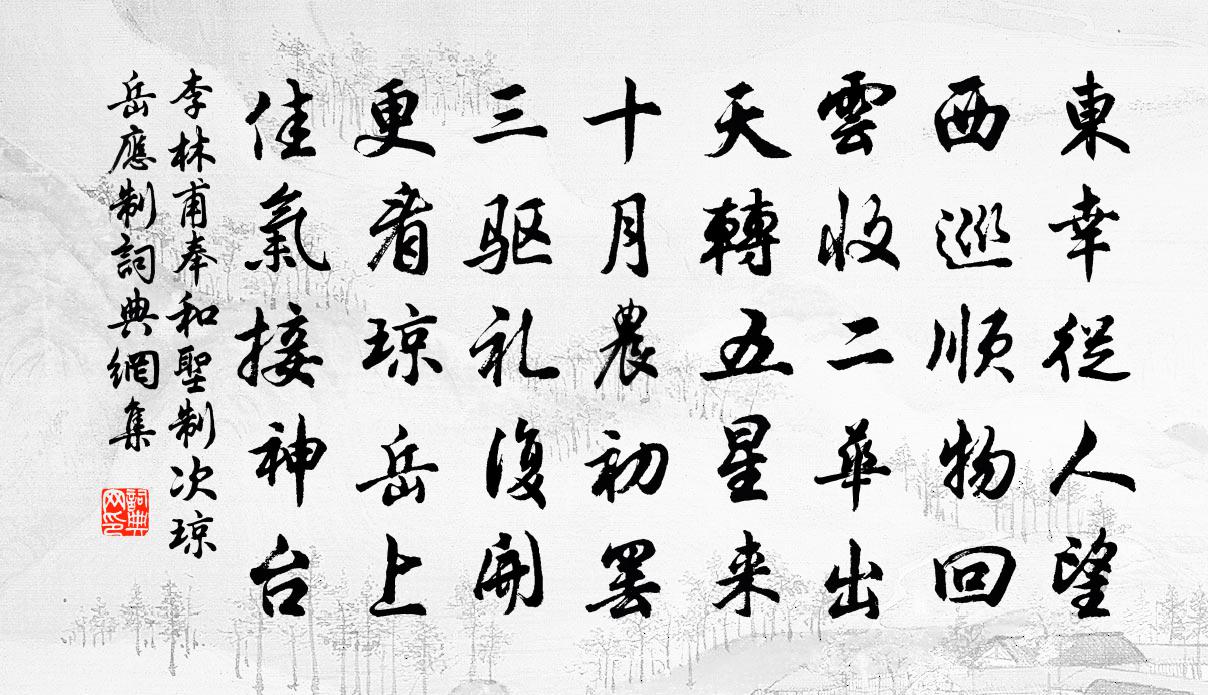 東幸從人望
西巡顺物回
雲收二華出
天轉五星来
十月農初罢
三驱礼復開
更看琼岳上
佳氣接神台
李林甫奉和聖制次琼
岳應制詞典網集
詞典
网印